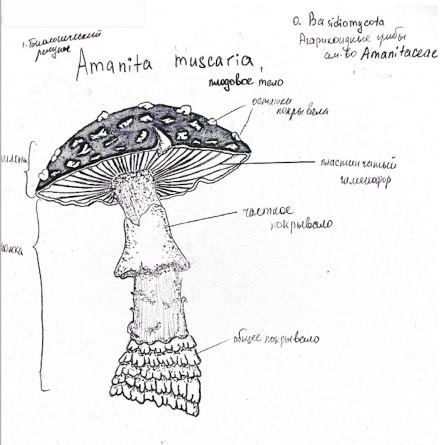 1. Биологический
рисунок
Amanita muscaria,
плодовое тело
О. Basidiomycota
Агарикоидные грибы
сем-во Amanitaceae
остатки
покрывала
шляпка
пластинчатый
гименофор
частное
покрывало
ножка
общее покрывало